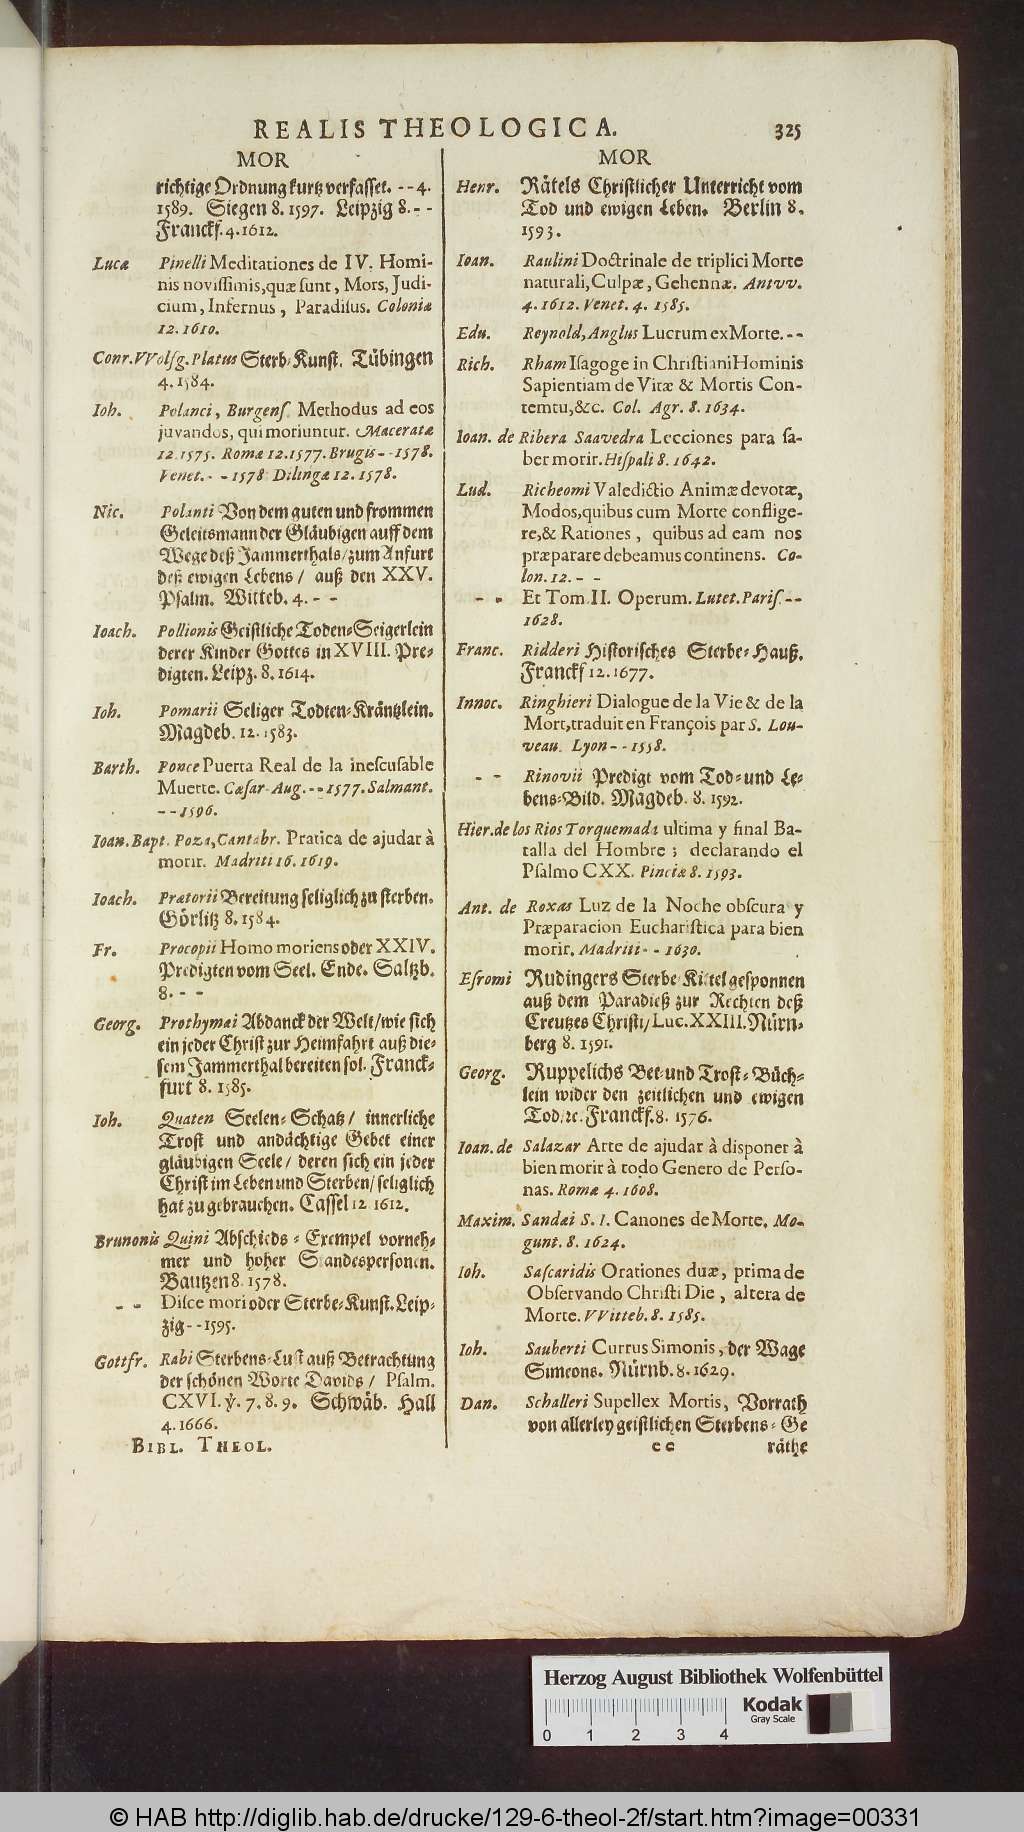 REALIS THEOLOGICA. 325
MOR
richtige Ordnung kurtz verfasset. - - 4.
1589. Siegen 8. 1597. Leipzig 8. - -
Franckf. 4. 1612.
Lucæ Pinelli Meditationes de IV. Homi-
nis novissimis, quæ sunt, Mors, Judi-
cium, Infernus, Paradisus. Coloniæ
12. 1610.
Conr. VVolfg. Platus Sterb-Kunst. Tübingen
4. 1584.
Ioh. Polanci, Burgens. Methodus ad eos
juvandos, qui moriuntur. Maceratæ
12. 1575. Romæ 12. 1577. Brugis - - 1578.
Venet. - - 1578 Dilingæ 12. 1578.
Nic. Polanti Von dem guten und frommen
Geleitsmann der Gläubigen auff dem
Wege deß Jammerthals/ zum Anfurt
deß ewigen Lebens/ auß den XXV.
Psalm. Witteb. 4. - -
Ioach. Pollionis Geistliche Toden-Seigerlein
derer Kinder Gottes in XVIII. Pre-
digten. Leipz. 8. 1614.
Ioh. Pomarii Seliger Todten-Kräntzlein.
Magdeb. 12. 1583.
Barth. Ponce Puerta Real de la inescusable
Muerte. Cæsar-Aug. - - 1577. Salmant.
- - 1596.
Ioan. Bapt. Poza, Cantabr. Pratica de ajudar à
morir. Madriti 16. 1619.
Ioach. Prætorii Bereitung seliglich zu sterben.
Görlitz 8. 1584.
Fr. Procopii Homo moriens oder XXIV.
Predigten vom Seel. Ende. Saltzb.
8. - -
Georg. Prothymæi Abdanck der Welt/ wie sich
ein jeder Christ zur Heimfahrt auß die-
sem Jammerthal bereiten sol. Franck-
furt 8. 1585.
Ioh. Quaten Seelen-Schatz/ innerliche
Trost und andächtige Gebet einer
gläubigen Seele/ deren sich ein jeder
Christ im Leben und Sterben/ seliglich
hat zu gebrauchen. Cassel 12 1612.
Brunonis Quini Abschieds-Exempel vorneh-
mer und hoher Standespersonen.
Bautzen 8. 1578.
- - Disce mori oder Sterbe-Kunst. Leip-
zig - - 1595.
Gottfr. Rabi Sterbens-Lust auß Betrachtung
der schönen Worte Davids/ Psalm.
CXVI. ℣. 7. 8. 9. Schwäb. Hall
4. 1666.
BIBL. THEOL.
MOR
Henr. Rätels Christlicher Unterricht vom
Tod und ewigen Leben. Berlin 8.
1593.
Ioan. Raulini Doctrinale de triplici Morte
naturali, Culpæ, Gehennæ. Antvv.
4. 1612. Venet. 4. 1585.
Edu. Reynold, Anglus Lucrum ex Morte. - -
Rich. Rham Isagoge in Christiani Hominis
Sapientiam de Vitæ & Mortis Con-
temtu, &c. Col. Agr. 8. 1634.
Ioan. de Ribera Saavedra Lecciones para sa-
ber morir. Hispali 8. 1642.
Lud. Richeomi Valedictio Animæ devotæ,
Modos, quibus cum Morte conflige-
re, & Rationes, quibus ad eam nos
præparare debeamus continens. Co-
lon. 12. - -
- - Et Tom. II. Operum. Lutet. Paris. - -
1628.
Franc. Ridderi Historisches Sterbe-Hauß.
Franckf 12. 1677.
Innoc. Ringhieri Dialogue de la Vie & de la
Mort, traduit en François par S. Lou-
veau. Lyon - - 1558.
- - Rinovii Predigt vom Tod- und Le-
bens-Bild. Magdeb. 8. 1592.
Hier. de los Rios Torquemada ultima y final Ba-
talla del Hombre; declarando el
Psalmo CXX. Pinciæ 8. 1593.
Ant. de Roxas Luz de la Noche obscura y
Præparacion Eucharistica para bien
morir. Madriti - - 1630.
Esromi Rudingers Sterbe-Kittel gesponnen
auß dem Paradieß zur Rechten deß
Creutzes Christi/ Luc. XXIII. Nürn-
berg 8. 1591.
Georg. Ruppelichs Bet- und Trost-Büch-
lein wider den zeitlichen und ewigen
Tod/ ꝛc. Franckf. 8. 1576.
Ioan. de Salazar Arte de ajudar à disponer à
bien morir à todo Genero de Perso-
nas. Romæ 4. 1608.
Maxim. Sandæi S. I. Canones de Morte. Mo-
gunt. 8. 1624.
Ioh. Sascaridis Orationes duæ, prima de
Observando Christi Die, altera de
Morte. VVitteb. 8. 1585.
Ioh. Sauberti Currus Simonis, der Wage
Simeons. Nürnb. 8. 1629.
Dan. Schalleri Supellex Mortis, Vorrath
von allerley geistlichen Sterbens-Ge
c c räthe
Herzog August Bibliothek Wolfenbüttel
Kodak
Gray Scale
0 1 2 3 4
© HAB http://diglib.hab.de/drucke/129-6-theol-2f/start.htm?image=00331